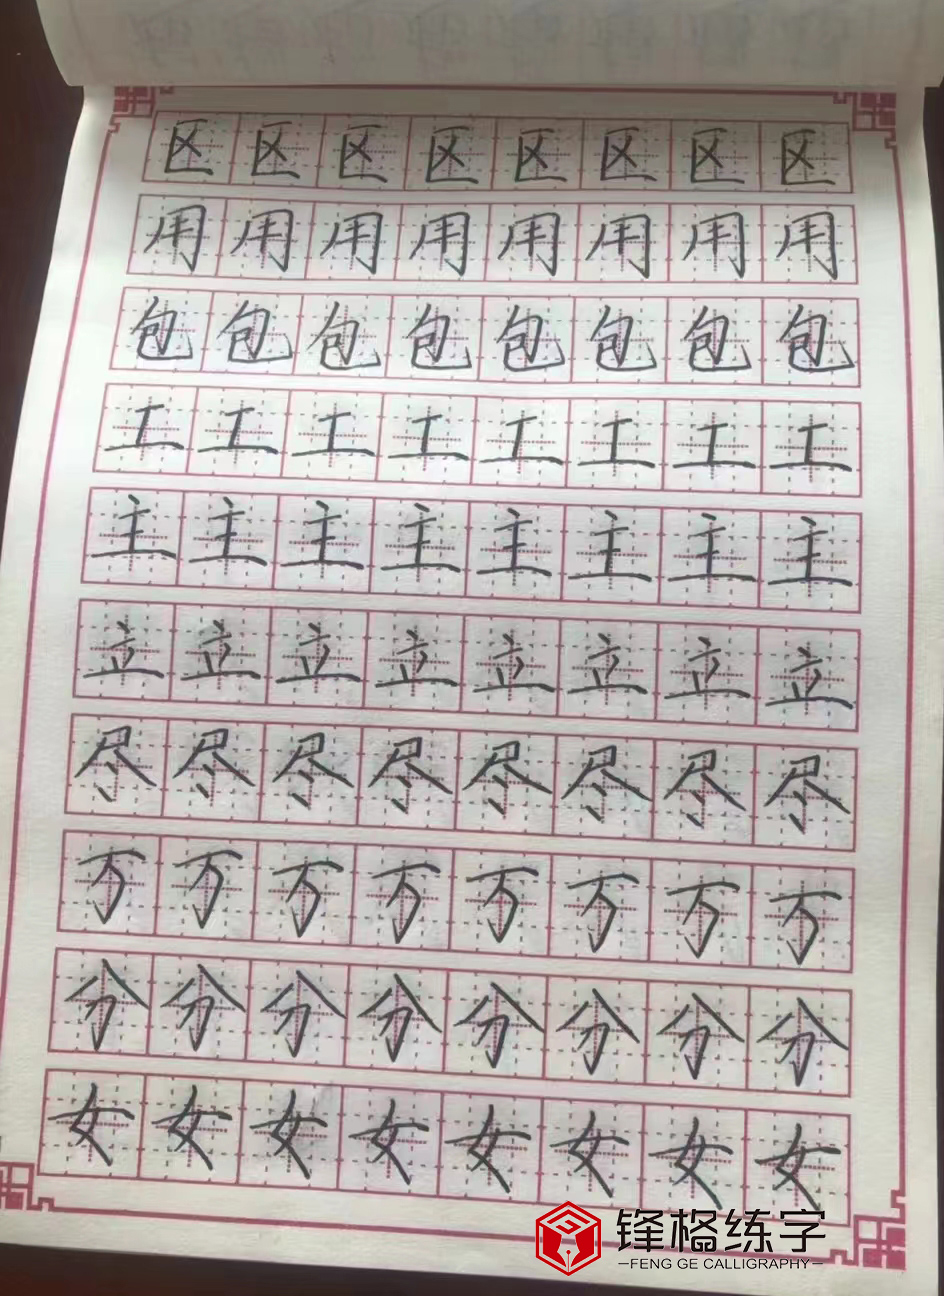 区区区区区区区区
用用用用用用用用
包包包包包包包包
工工工工工工工工
主主主主主主主主
立立立立立立立立
尽尽尽尽尽尽尽尽
万万万万万万万万
分分分分分分分分
女女女女女女女女
锋格练字
—FENG GE CALLIGRAPHY—